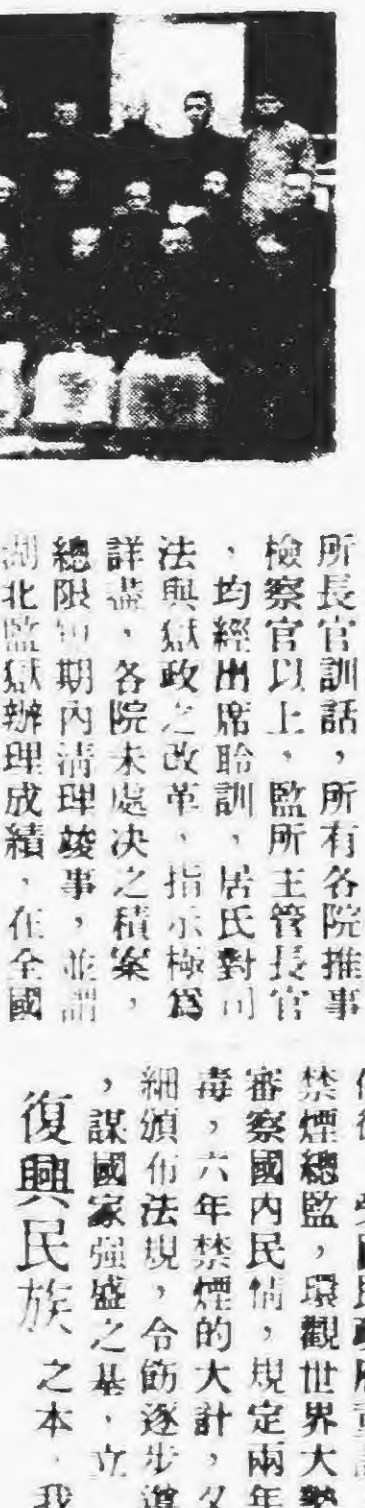 所長官訓話，所有各院推事
檢察官以上，監所主管長官
，均經出席聆訓，居氏對司
法與獄政之改革，指示極爲
詳盡，各院未處决之積案，
總限短期內清理竣事，並謂
湖北監獄辦理成績，在全國
禁煙總監，環觀世界大勢
審察國內民情，規定兩年
毒，六年禁煙的大計，又
細頒布法規，令飭逐步
，謀國家强盛之基，立
復興民族之本，我